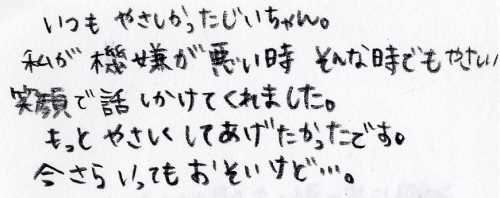 いつも やさしかったじいちゃん。
私が 機嫌が 悪い時 そんな時でもやさしい
笑顔で話しかけてくれました。
もっと やさしくしてあげたかったです。
今さらいってもおそいけど…。